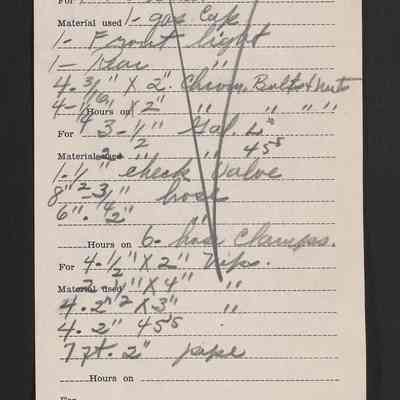 For
Material used 1- gas Cap
1- Front light
1- Rear "
4- 3/16" X 2" Chrom. Bolts & nuts
4- 1/4 Hours on X 2" " " " "
For 3- 1/2" Gal. L"
Material used 2- 1/2" " 45s
1- 1/2" check valve
8" 2- 3/4" hose
6" - 1/2" "
Hours on 6- hose Clamps.
For 4- 1/2" X 2" Nips.
Material used 2- 1/2" X 4" "
4- 2" X 3" "
4- 2" 45s
7 ft. 2" pipe
Hours on
For